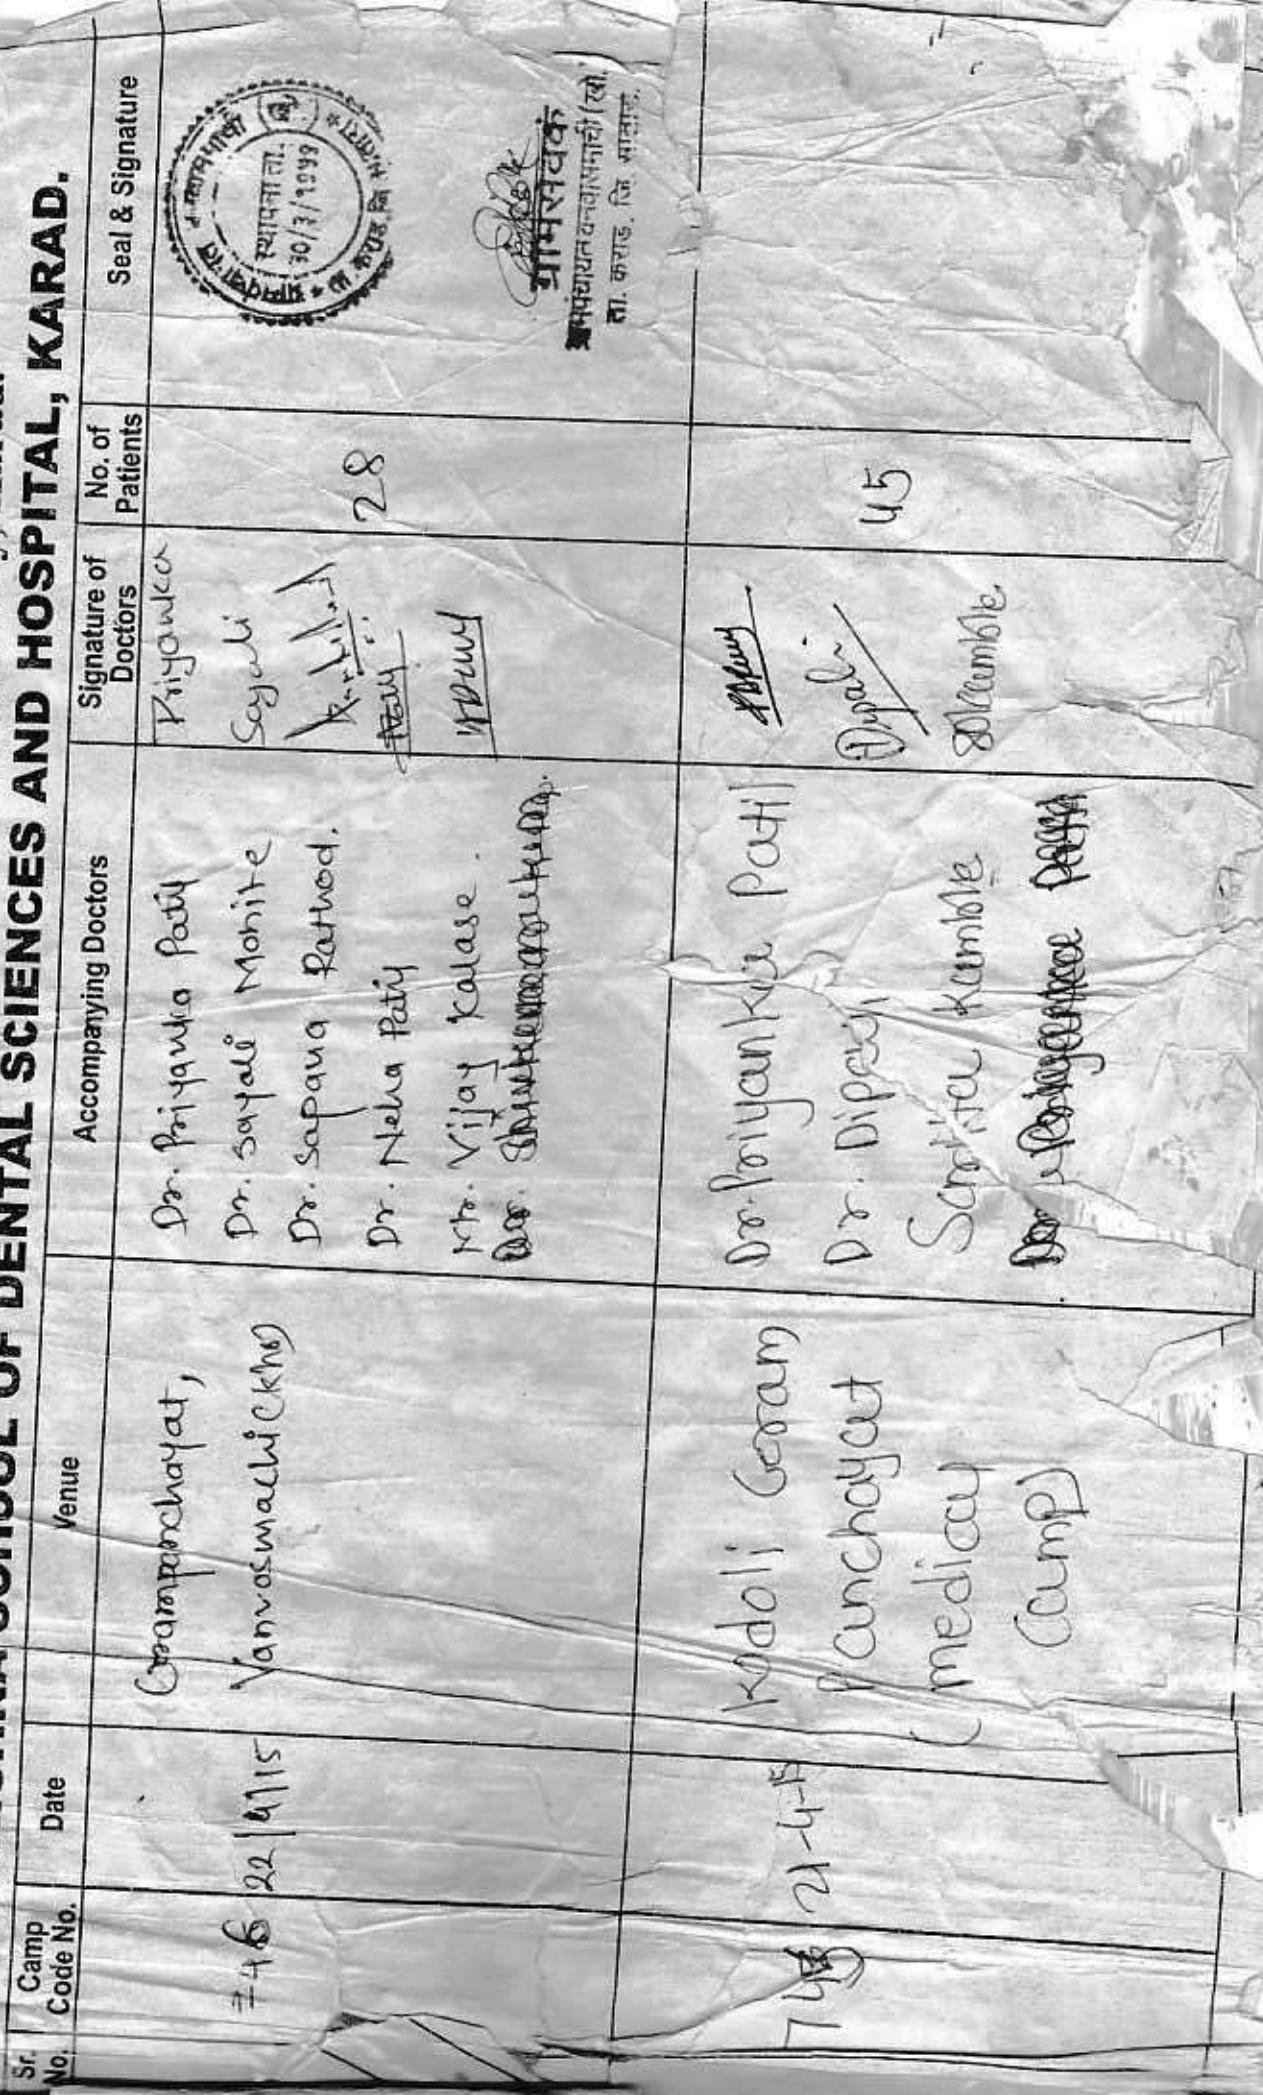 SCHOOL OF DENTAL SCIENCES AND HOSPITAL, KARAD.
Sr. No. Camp Code No. Date Venue Accompanying Doctors Signature of Doctors No. of Patients Seal & Signature
22/4/15
Grampanchayat,
Vanvasmachi (Kh)
Dr. Priyanka Patil
Dr. Sayali Mohite
Dr. Sapana Rathod.
Dr. Neha Patil
Mr. Vijay Kalase.
Priyanka
Sayali
28
स्थापना ता.
30/3/1999
ग्रामसेवक
ता. कराड, जि. सातारा.
21-4-15
Kodoli Gram
Panchayat
(medical
Camp)
Dr. Priyanka Patil
Dr. Dipali
Sarita Kamble
Dipali
SDKamble
45